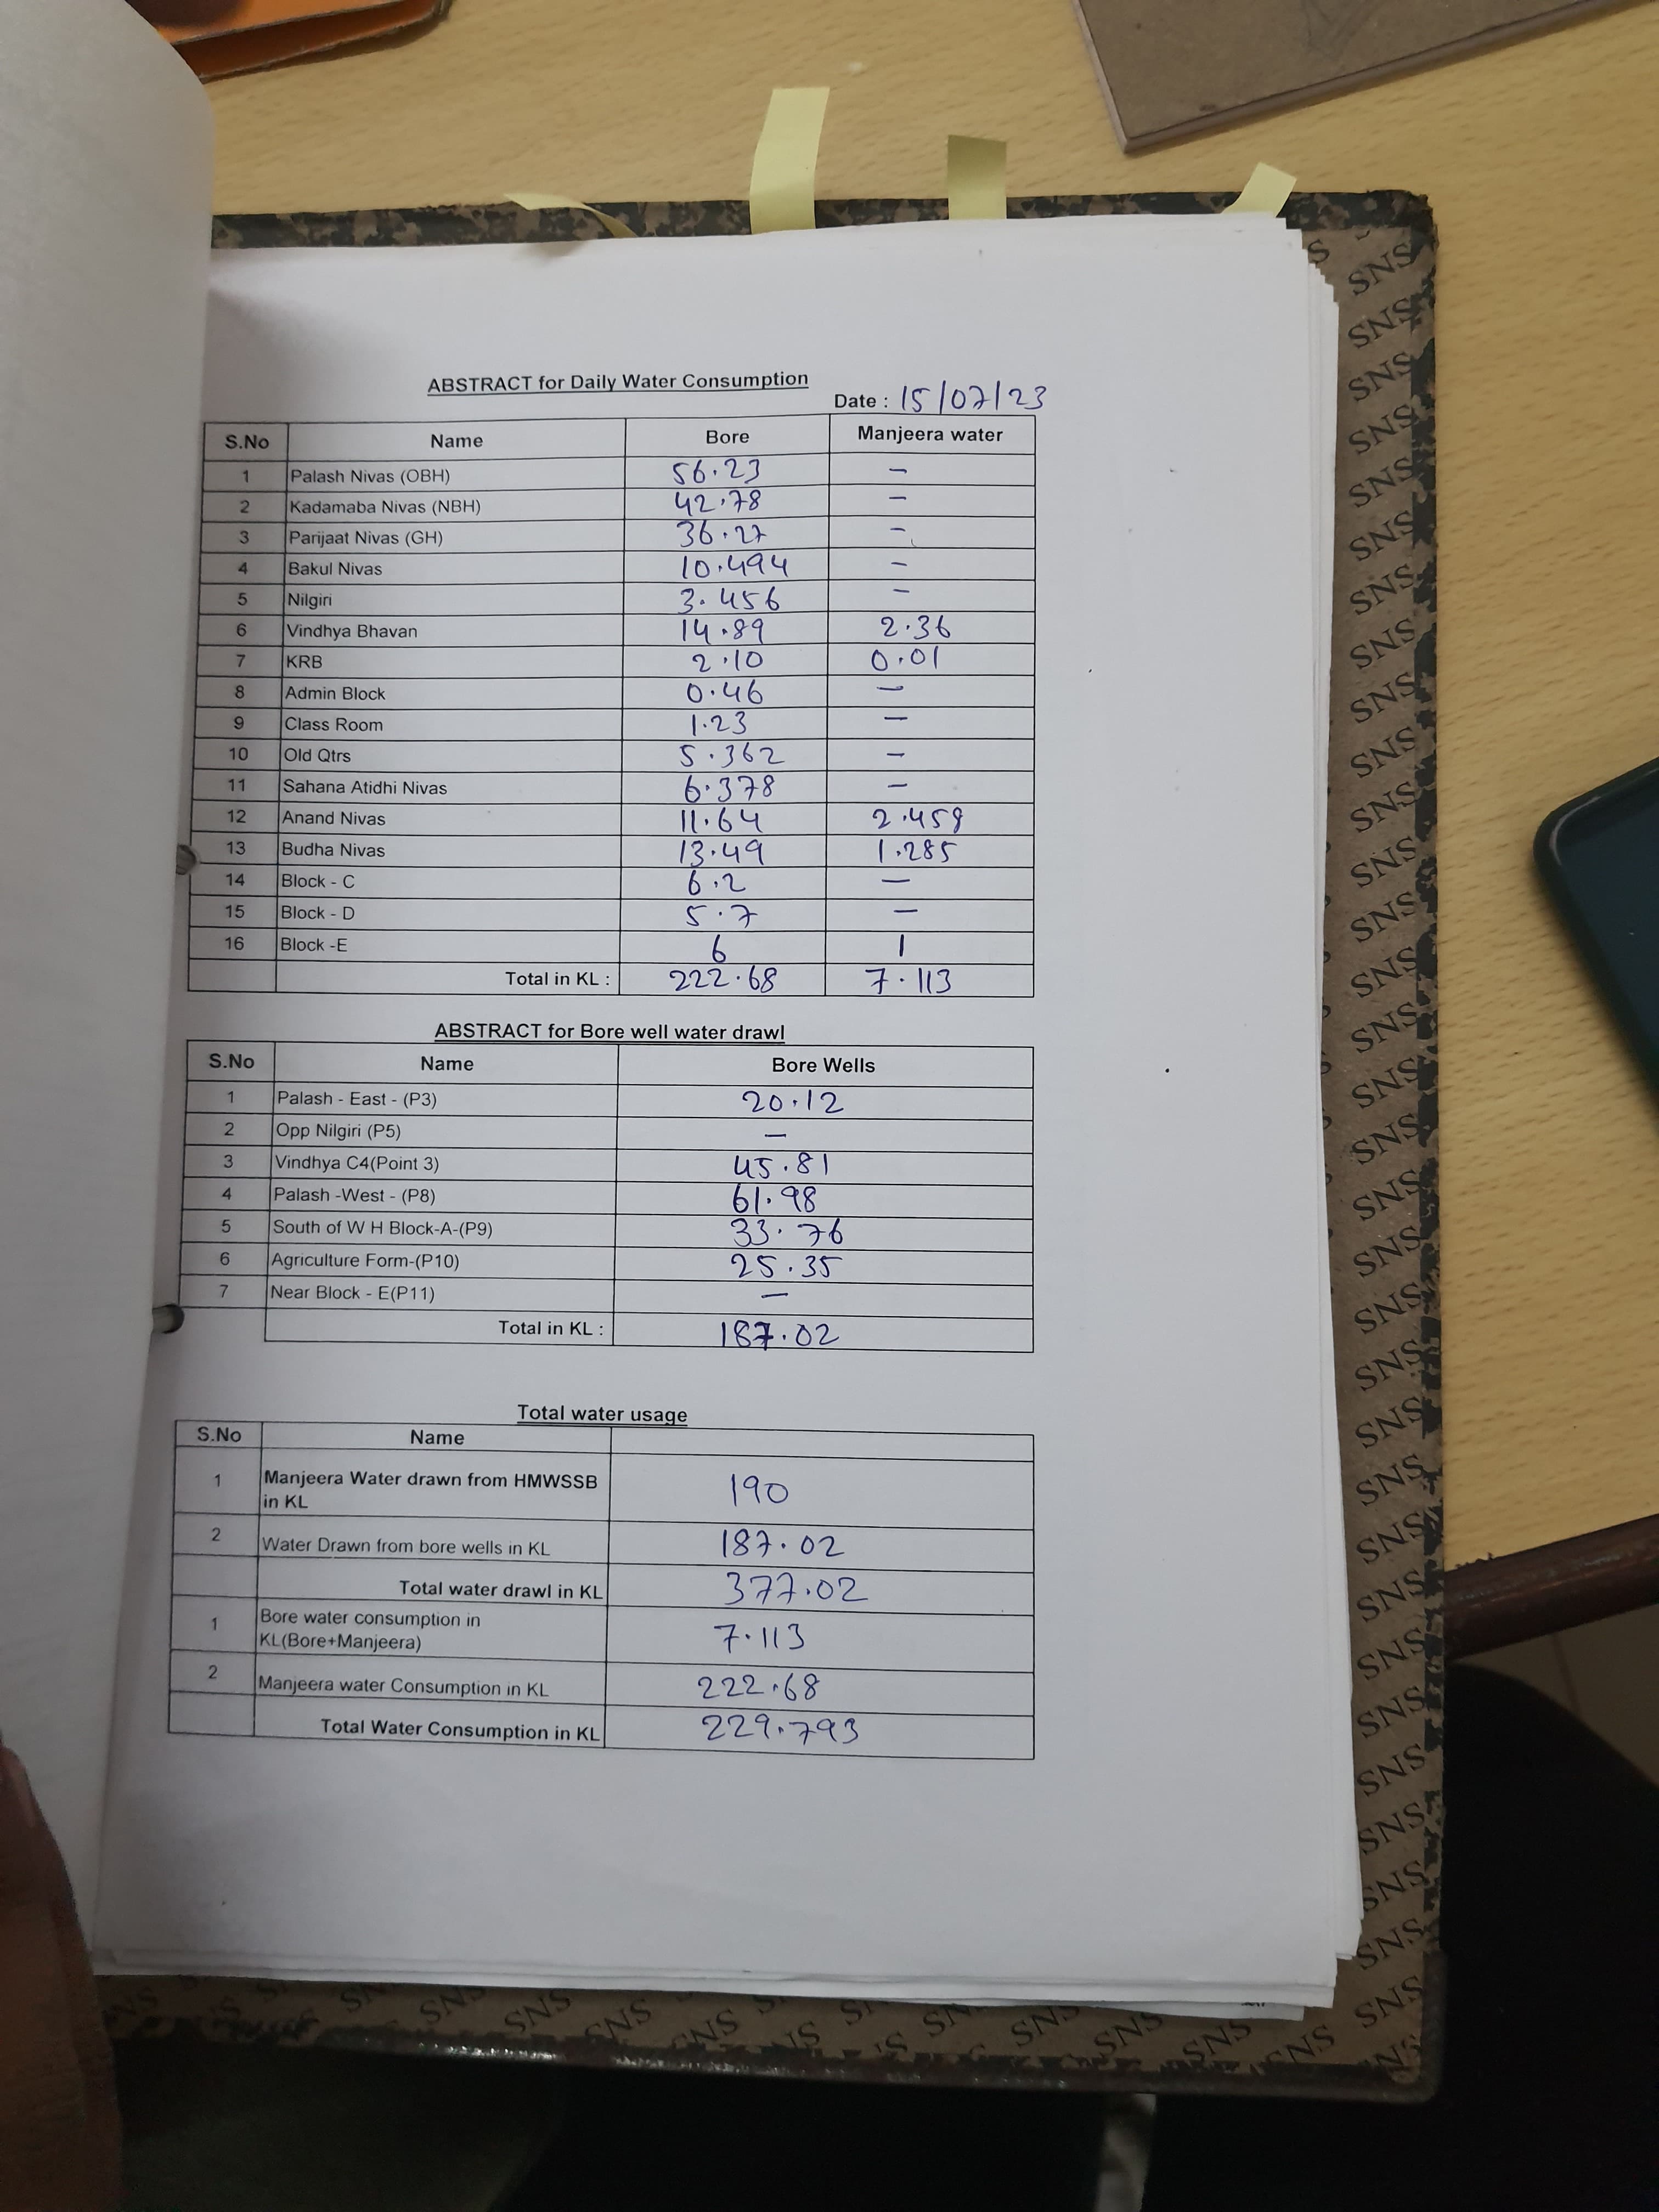 ABSTRACT for Daily Water Consumption
Date : 15/07/23
S.No Name Bore Manjeera water
1 Palash Nivas (OBH) 56.23 -
2 Kadamaba Nivas (NBH) 42.78 -
3 Parijaat Nivas (GH) 36.27 -
4 Bakul Nivas 10.494 -
5 Nilgiri 3.456 -
6 Vindhya Bhavan 14.89 2.36
7 KRB 2.10 0.01
8 Admin Block 0.46 -
9 Class Room 1.23 -
10 Old Qtrs 5.362 -
11 Sahana Atidhi Nivas 6.378 -
12 Anand Nivas 11.64 2.458
13 Budha Nivas 13.49 1.285
14 Block - C 6.2 -
15 Block - D 5.7 -
16 Block -E 6 1
Total in KL : 222.68 7.113
ABSTRACT for Bore well water drawl
S.No Name Bore Wells
1 Palash - East - (P3) 20.12
2 Opp Nilgiri (P5) -
3 Vindhya C4(Point 3) 45.81
4 Palash -West - (P8) 61.98
5 South of W H Block-A-(P9) 33.76
6 Agriculture Form-(P10) 25.35
7 Near Block - E(P11) -
Total in KL : 187.02
Total water usage
S.No Name
1 Manjeera Water drawn from HMWSSB
in KL 190
2 Water Drawn from bore wells in KL 187.02
Total water drawl in KL 377.02
1 Bore water consumption in
KL(Bore+Manjeera) 7.113
2 Manjeera water Consumption in KL 222.68
Total Water Consumption in KL 229.793
SNS